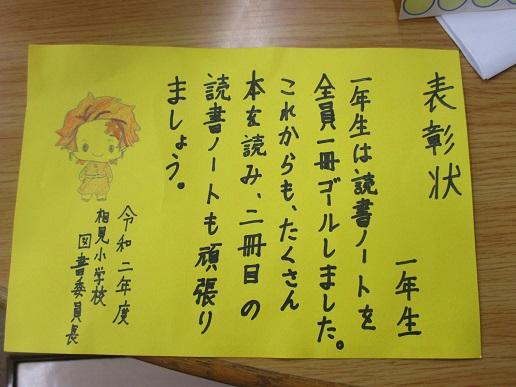 表彰状
一年生
一年生は読書ノートを
全員一冊ゴールしました。
これからも、たくさん
本を読み、二冊目の
読書ノートも頑張り
ましょう。
令和二年度
相見小学校
図書委員長